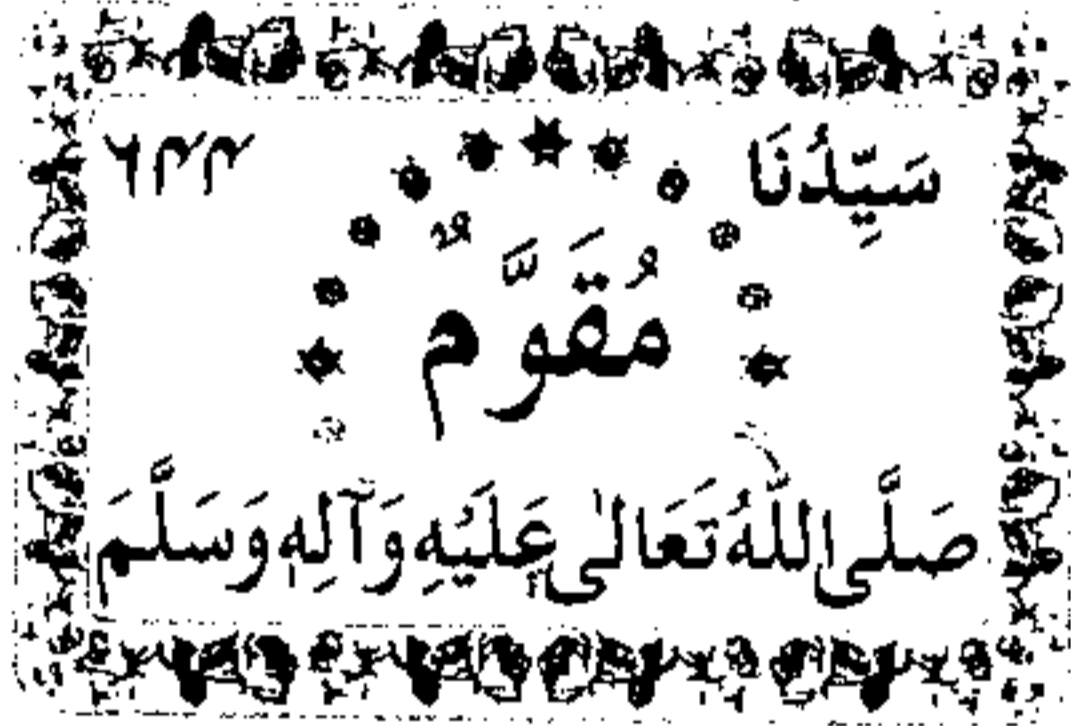 سَيِّدُنَا
مُقَوَّمٌ
صَلَّى اللّٰهُ تَعَالىٰ عَلَيْهِ وَآلِهٖ وَسَلَّمَ